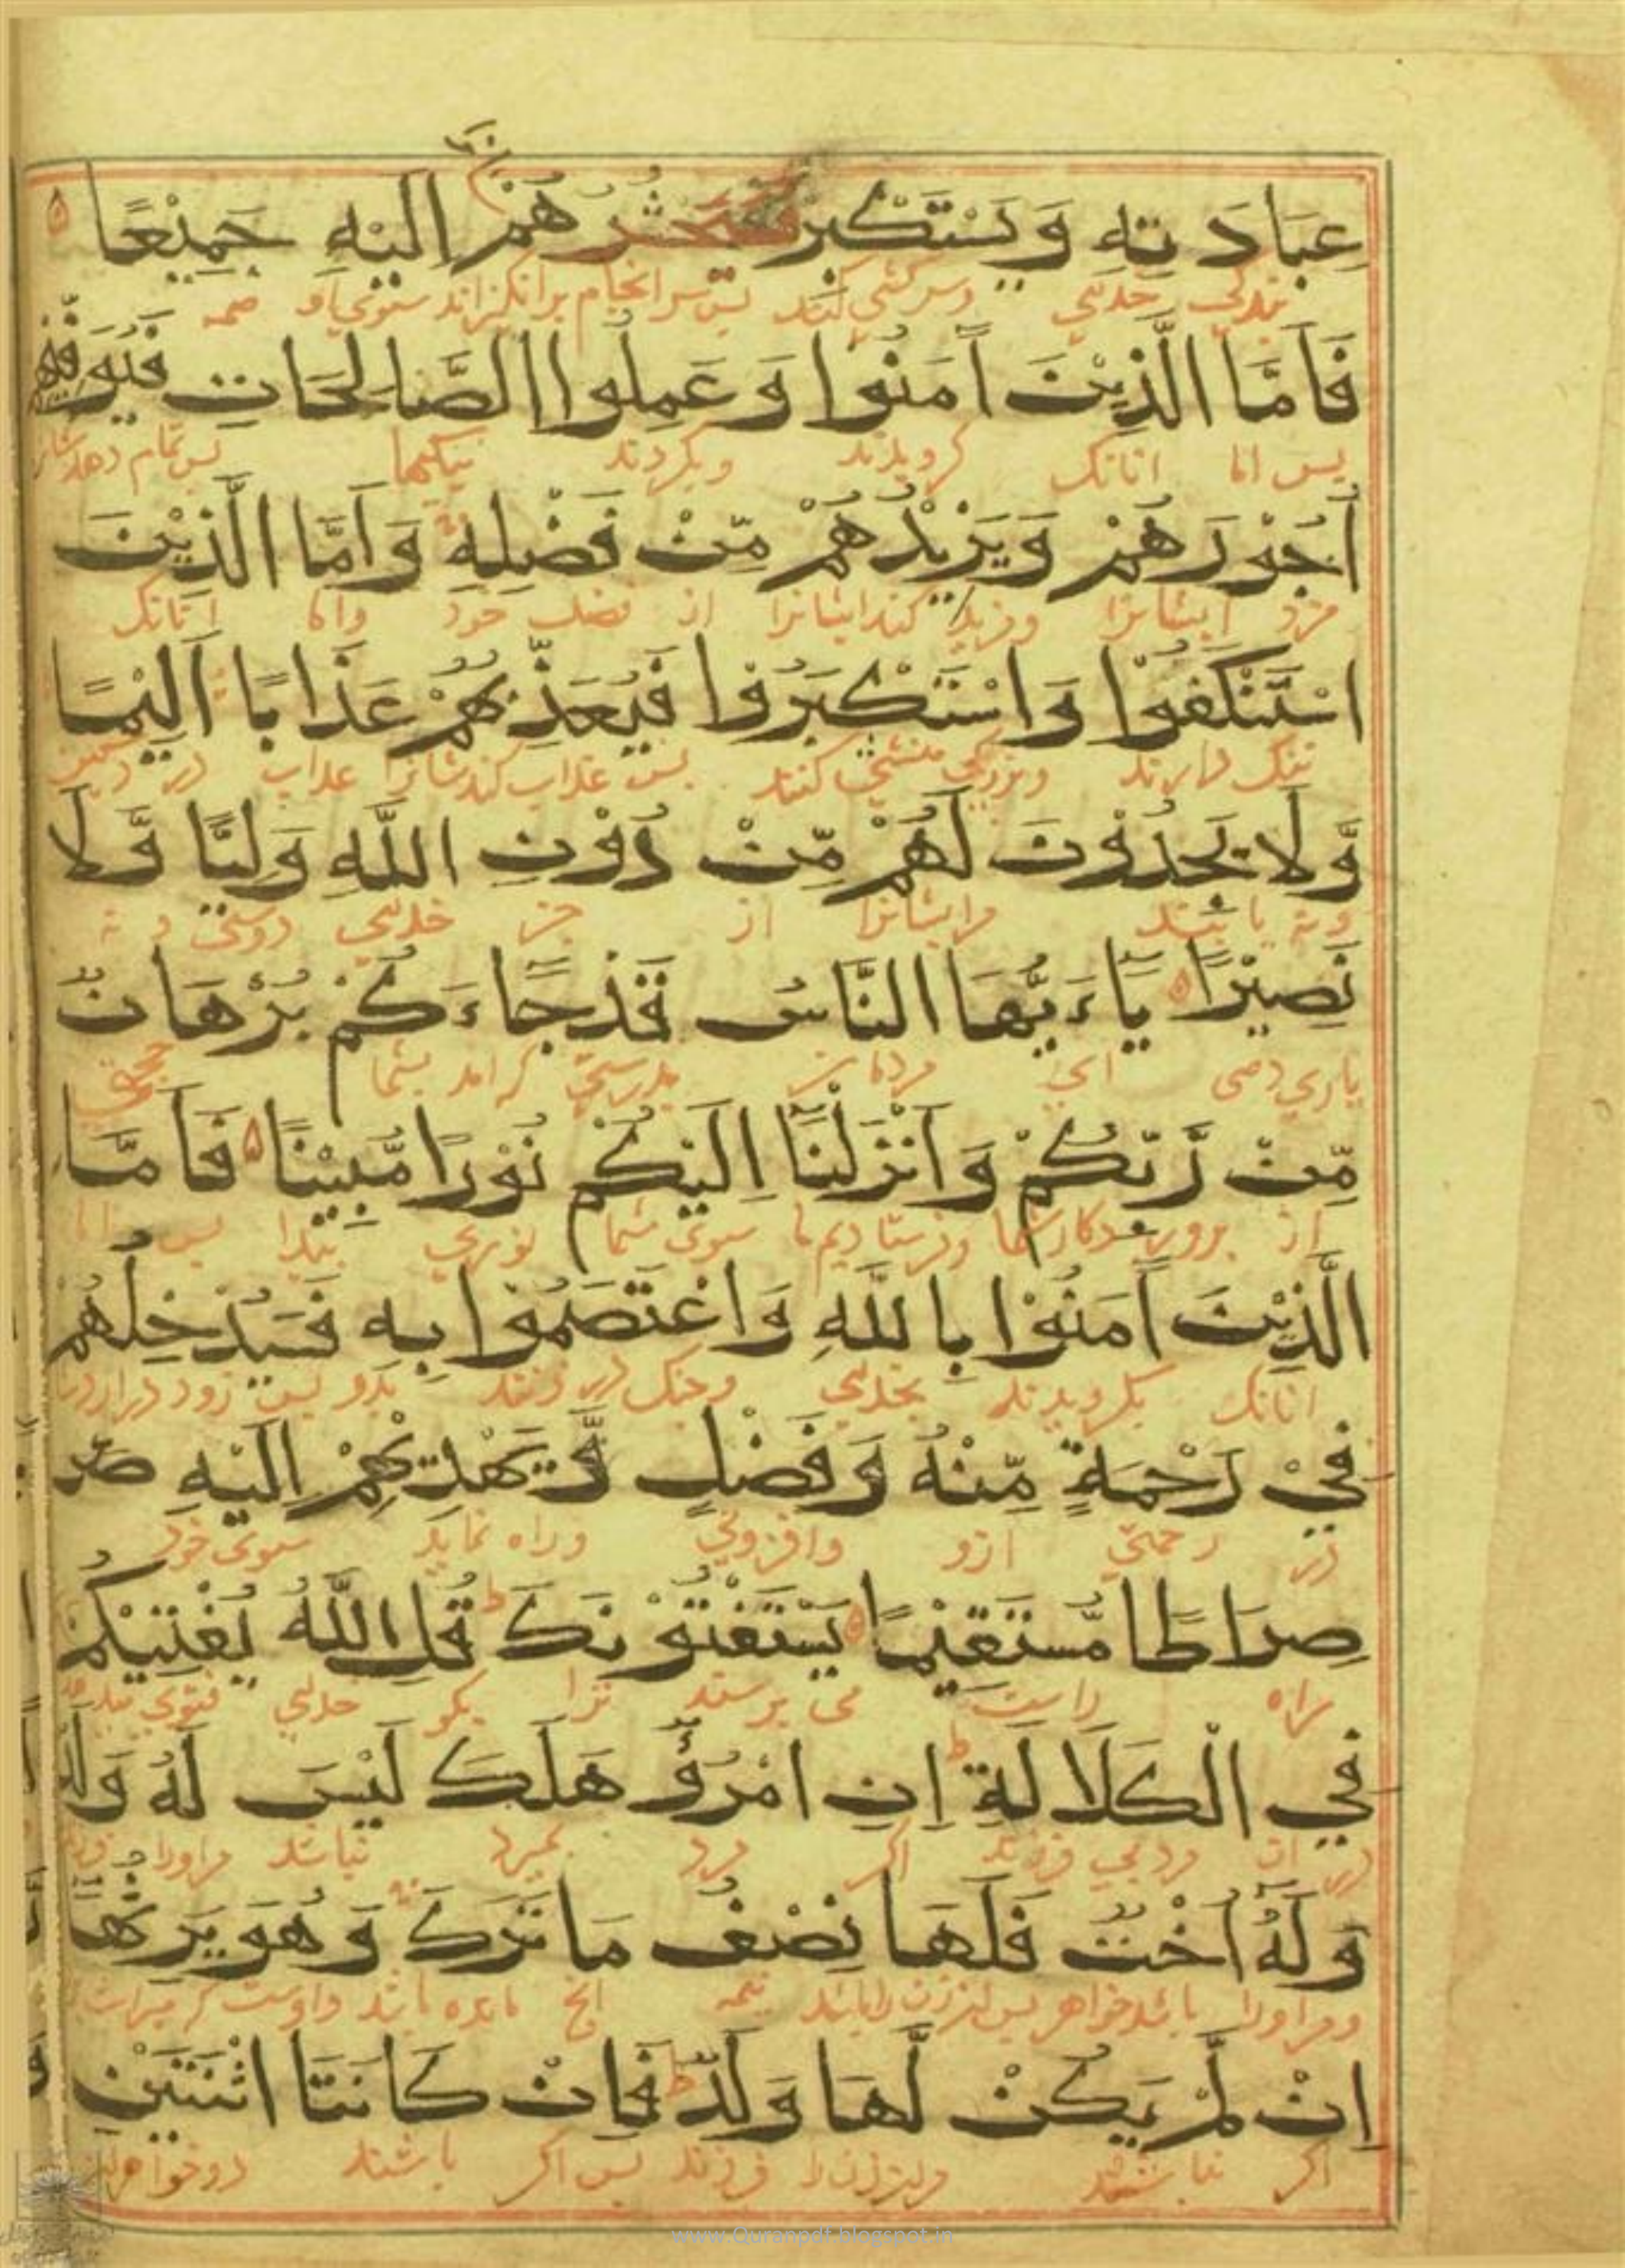 عِبَادَتِهِ وَيَسْتَكْبِرْ فَسَيَحْشُرُهُمْ إِلَيْهِ جَمِيْعًا
بندگی خدای وسرکشی کند پس سرانجام برانگیزاند سوی او همه
فَأَمَّا الَّذِيْنَ آمَنُوْا وَعَمِلُوا الصَّالِحَاتِ فَيُوَفِّيْهِمْ
پس اما آنانک گرویدند وبکردند نیکیها پس تمام دهد
أُجُوْرَهُمْ وَيَزِيْدُهُمْ مِّنْ فَضْلِهِ وَأَمَّا الَّذِيْنَ
مزد ایشانرا کند ایشانرا از فضل خود واما آنانک
اسْتَنْكَفُوْا وَاسْتَكْبَرُوْا فَيُعَذِّبُهُمْ عَذَابًا أَلِيْمًا
ننگ دارند کنند پس عذاب کند شانرا عذاب
وَّلَا يَجِدُوْنَ لَهُمْ مِّنْ دُوْنِ اللَّهِ وَلِيًّا وَّلَا
ونه یابند مرایشانرا از جز خدای دوستی و نه
نَصِيْرًا يَاءَيُّهَا النَّاسُ قَدْ جَاءَكُمْ بُرْهَانٌ
یاری دهی ای مردمان بدرستی که آمد بشما حجتی
مِّنْ رَّبِّكُمْ وَأَنْزَلْنَا إِلَيْكُمْ نُوْرًا مُّبِيْنًا فَأَمَّا
از پروردگار شما وفرستادیم ما سوی شما نوری پیدا پس اما
الَّذِيْنَ آمَنُوْا بِاللَّهِ وَاعْتَصَمُوْا بِهِ فَسَيُدْخِلُهُمْ
آنانک بگرویدند بخدای وچنگ در زدند بدو پس زود
فِيْ رَحْمَةٍ مِّنْهُ وَفَضْلٍ وَّيَهْدِيْهِمْ إِلَيْهِ صر
در رحمتی ازو وافزونی وراه نماید سوی خود
صِرَاطًا مُّسْتَقِيْمًا يَسْتَفْتُوْنَكَ قُلِ اللَّهُ يُفْتِيْكُمْ
راه راست می پرسند ترا بگو خدای فتوی
فِي الْكَلَالَةِ إِنِ امْرُؤٌ هَلَكَ لَيْسَ لَهُ وَلَدٌ
در آن فرزند اگر مرد بمیرد نباشد مراورا
وَلَهُ أُخْتٌ فَلَهَا نِصْفُ مَا تَرَكَ وَهُوَ يَرِثُهَا
ومراورا باشد خواهر پس نیمه آنچ مانده باشد
إِنْ لَّمْ يَكُنْ لَّهَا وَلَدٌ فَإِنْ كَانَتَا اثْنَتَيْنِ
اگر نباشد فرزند پس اگر باشند دو خواهر
www.Quranpdf.blogspot.in